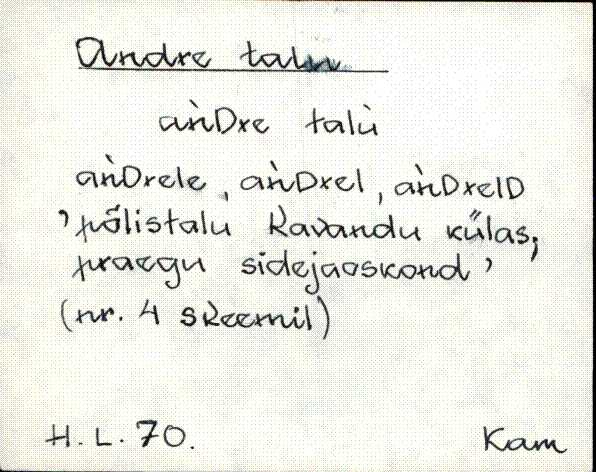 Andre talu
àǹDre talù
àǹDrele, àǹDrel, àǹDrelD
'põlistalu Kavandu külas;
praegu sidejaoskond'
(nr. 4 skeemil)
H. L. 70. Kam